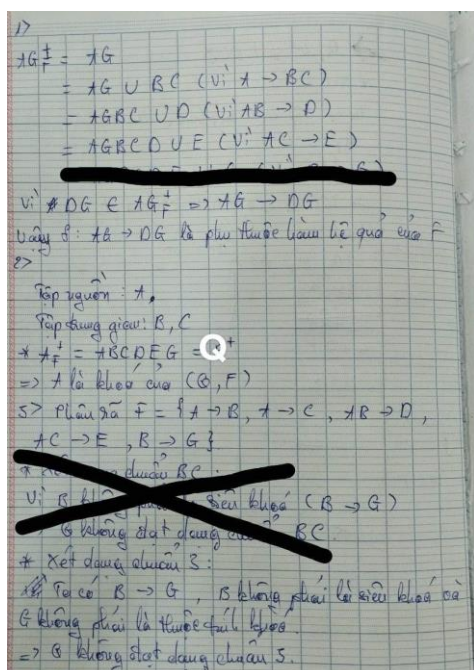 1>
AG⁺F = AG
= AG ∪ BC (vì A → BC)
= AGBC ∪ D (vì AB → D)
= AGBCD ∪ E (vì AC → E)
Vì DG ∈ AG⁺F => AG → DG
Vậy f: AG → DG là phụ thuộc hàm hệ quả của F
2>
Tập nguồn: A.
Tập trung gian: B, C
* A⁺F = ABCDEG = Q⁺
=> A là khoá của (Q, F)
3> Phân rã F = {A → B, A → C, AB → D,
AC → E, B → G}
chuẩn BC:
Vì B không siêu khoá (B → G)
Q không đạt dạng BC
* Xét dạng chuẩn 3:
Ta có B → G, B không phải là siêu khoá và
G không phải là thuộc tính khoá.
=> Q không đạt dạng chuẩn 3.